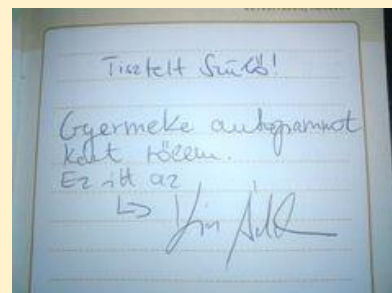 Tisztelt Szülő!
Gyermeke autogrammot
kért tőlem.
Ez itt az
↳